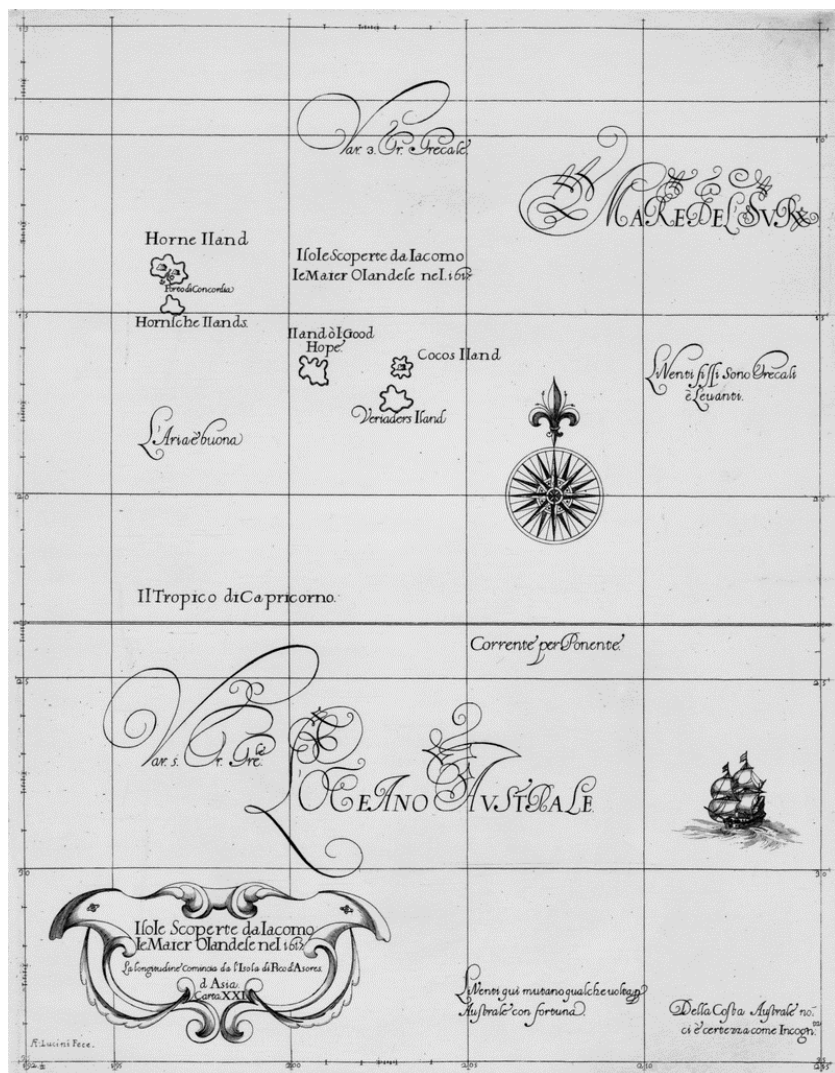 Var. 3. Gr. Grecale.
MARE DEL' SVR
Horne Iland
Isole Scoperte da Iacomo
le Maier Olandese nel. 1617
Porto di Concordia
Hornsche Ilands.
Iland ò I Good
Hope
Cocos Iland
Veriaders Iland
Li Venti fissi sono Grecali
è Levanti.
L'Aria è buona
Il Tropico di Capricorno.
Corrente per Ponente.
Var. 5. Gr. Gre.le
L'OCEANO AVSTRALE.
Isole Scoperte da Iacomo
le Maier Olandese nel 1617
La longitudine Comincia da l'Isola di Pico d'Asores.
d Asia
Carta XXI
Li Venti qui mutano qualche uolta p
Australe con fortuna.
Della Costa Australe no
ci è certezza come Incogn.
AF. Lucini Fece.